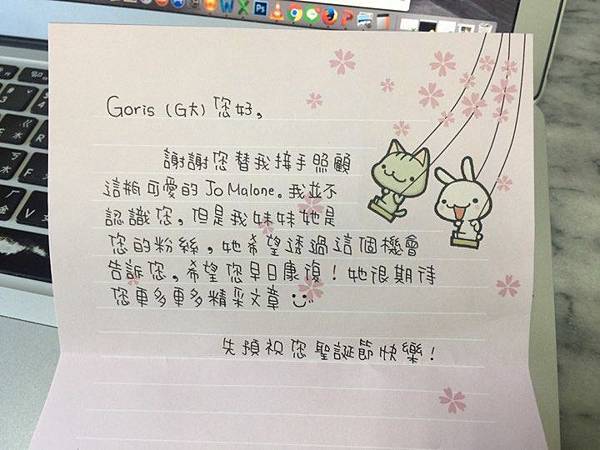 Goris (G大) 您好,
謝謝您替我接手照顧
這瓶可愛的 Jo Malone。我並不
認識您,但是我妹妹她是
您的粉絲,她希望透過這個機會
告訴您,希望您早日康復!她很期待
您更多更多精采文章
先預祝您聖誕節快樂!